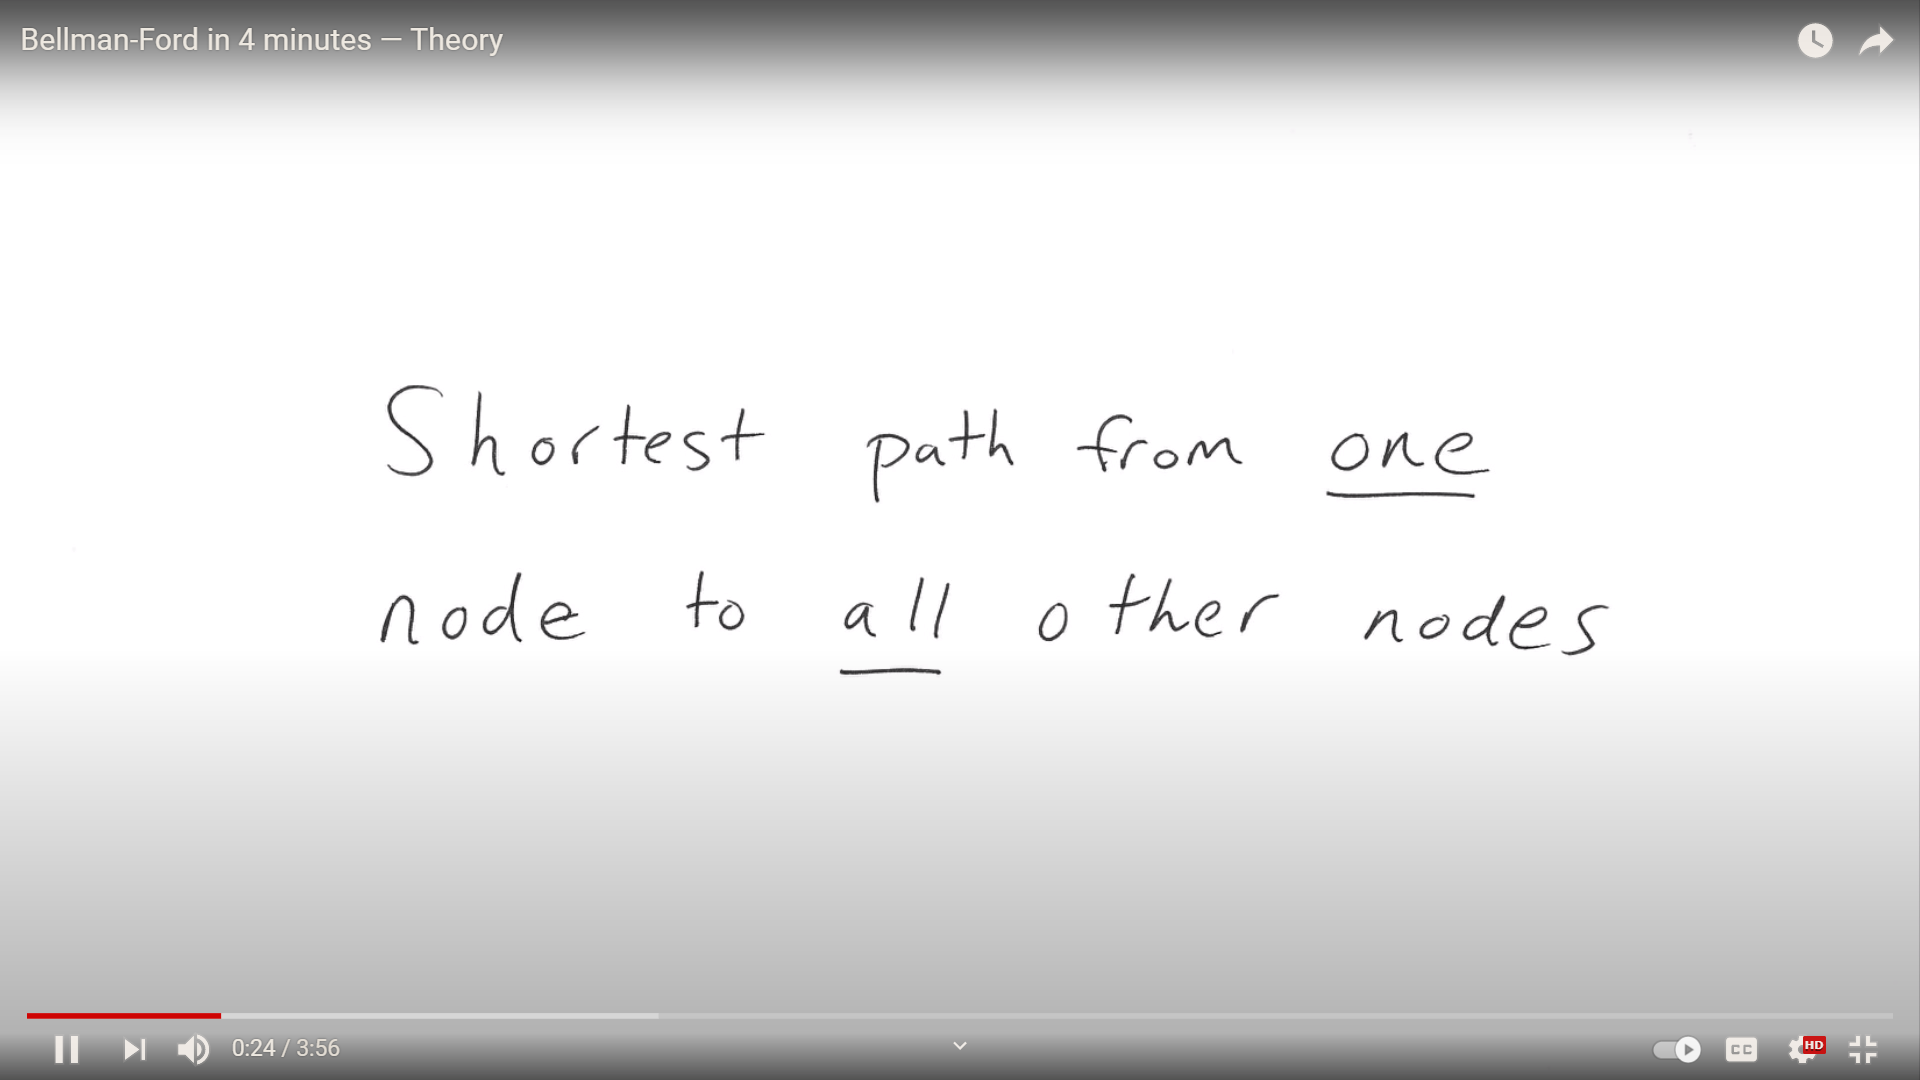 Bellman-Ford in 4 minutes — Theory
Shortest path from one
node to all other nodes
0:24 / 3:56
CC
HD